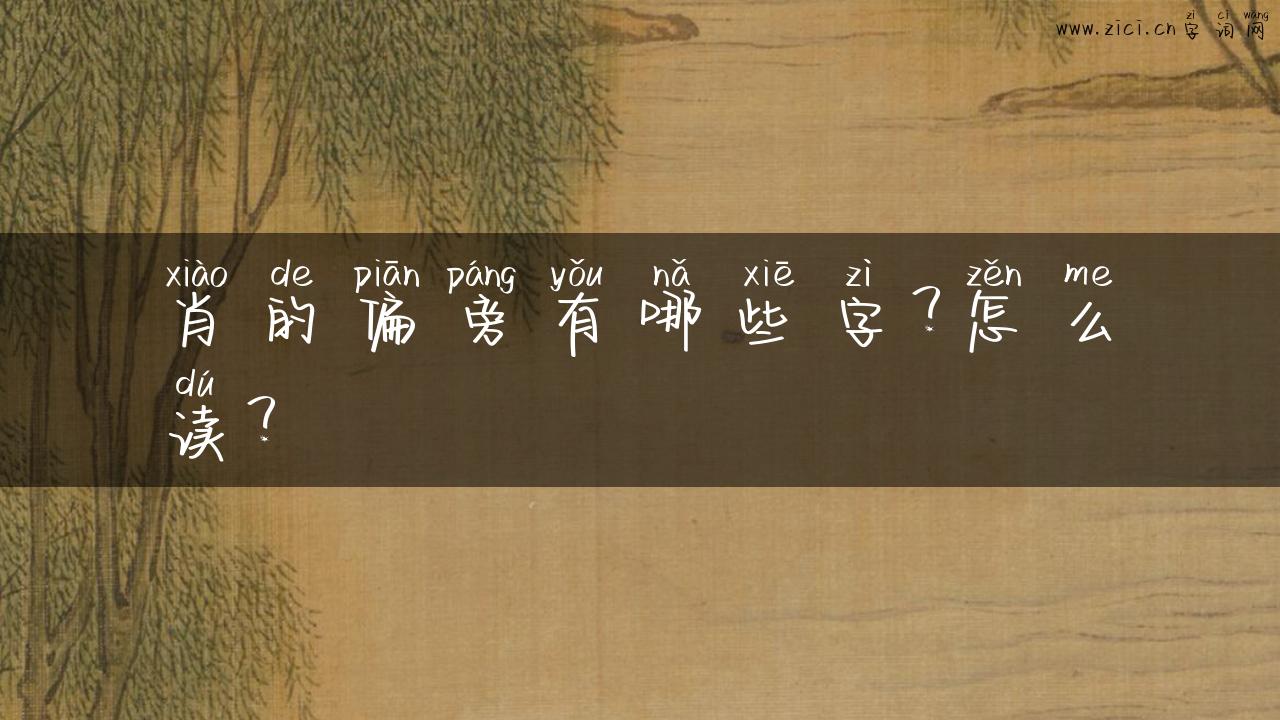 zì cí wǎng
www.zici.cn 字词网
xiào de piān páng yǒu nǎ xiē zì zěn me
肖的偏旁有哪些字？怎么
dú
读？